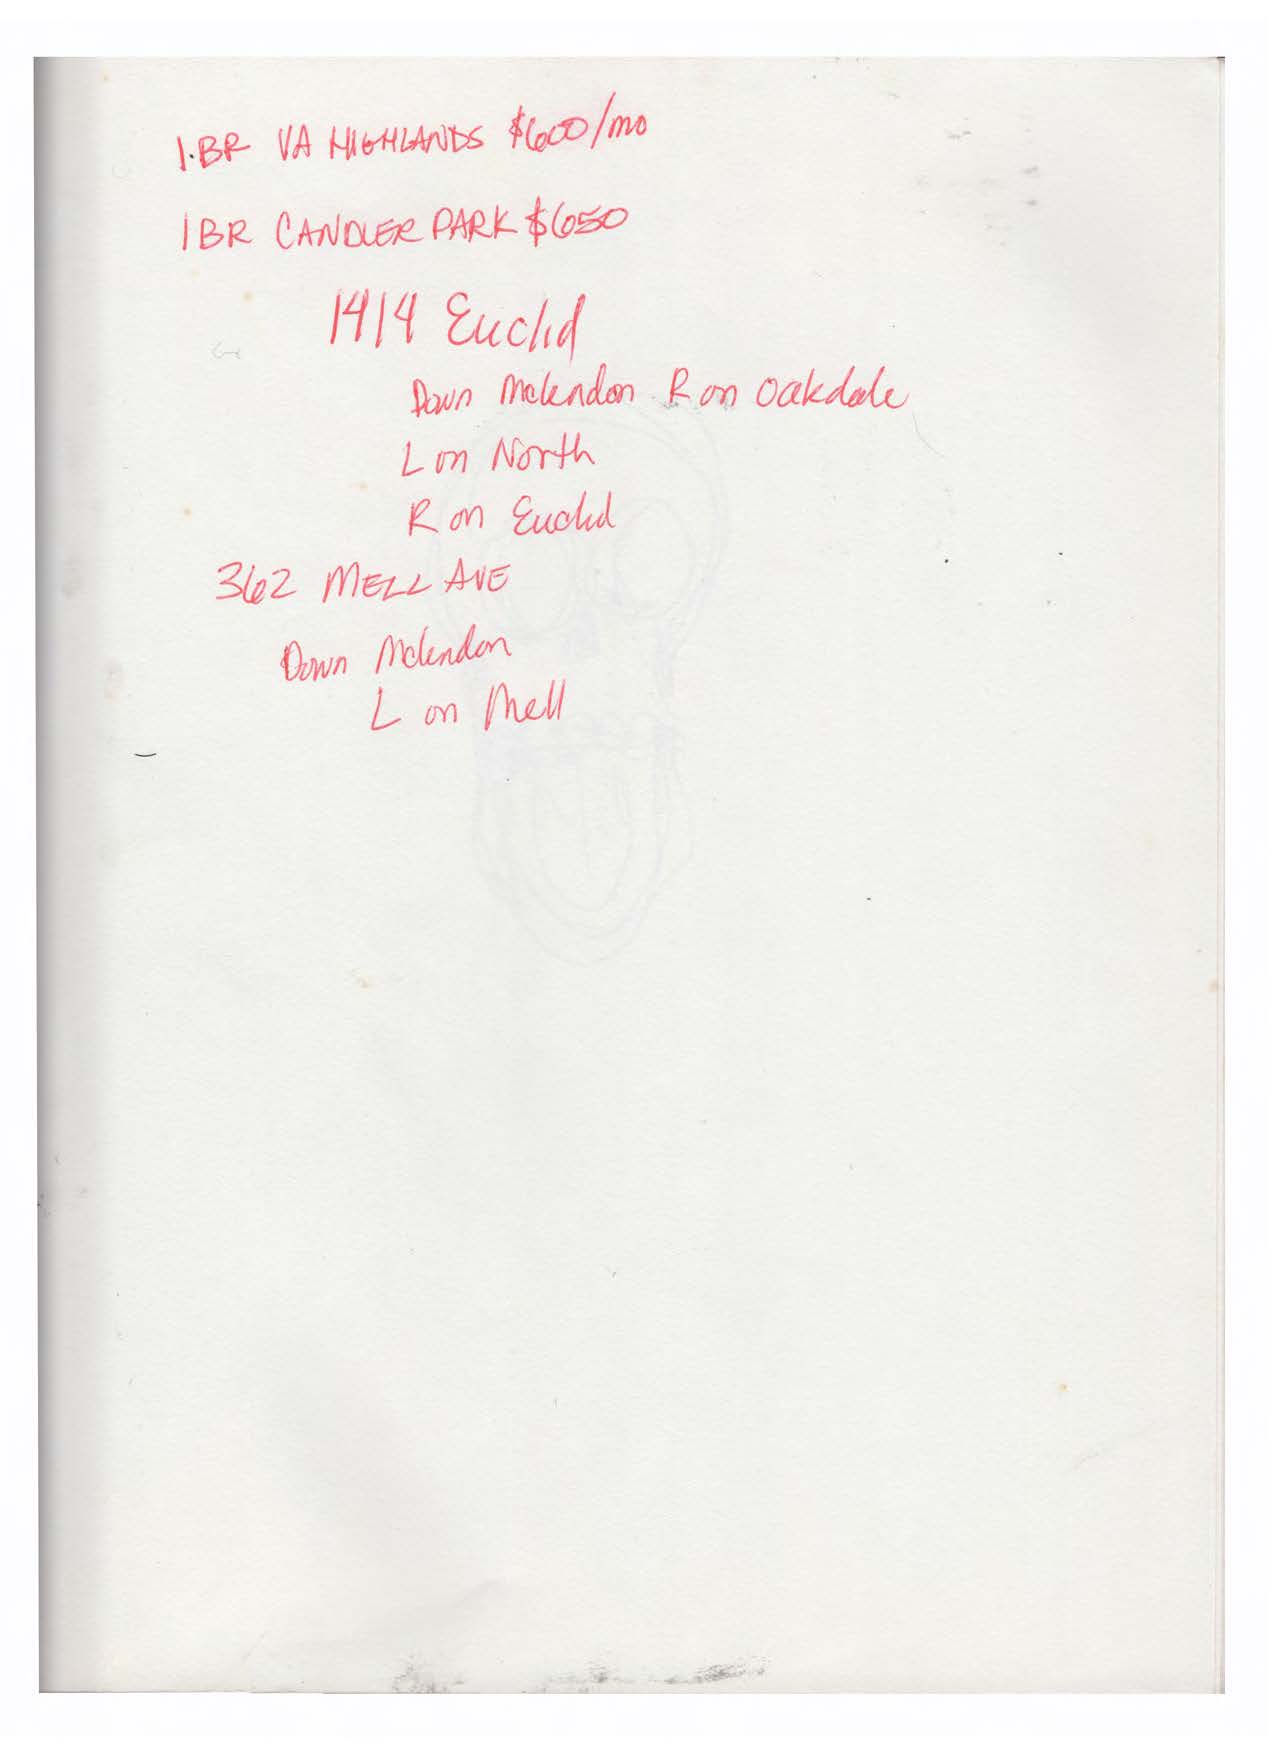 1.BR VA HIGHLANDS $600/mo
1BR CANDLER PARK $650
1414 Euclid
Down Mclendon R on Oakdale
L on North
R on Euclid
362 MELL AVE
Down Mclendon
L on Mell